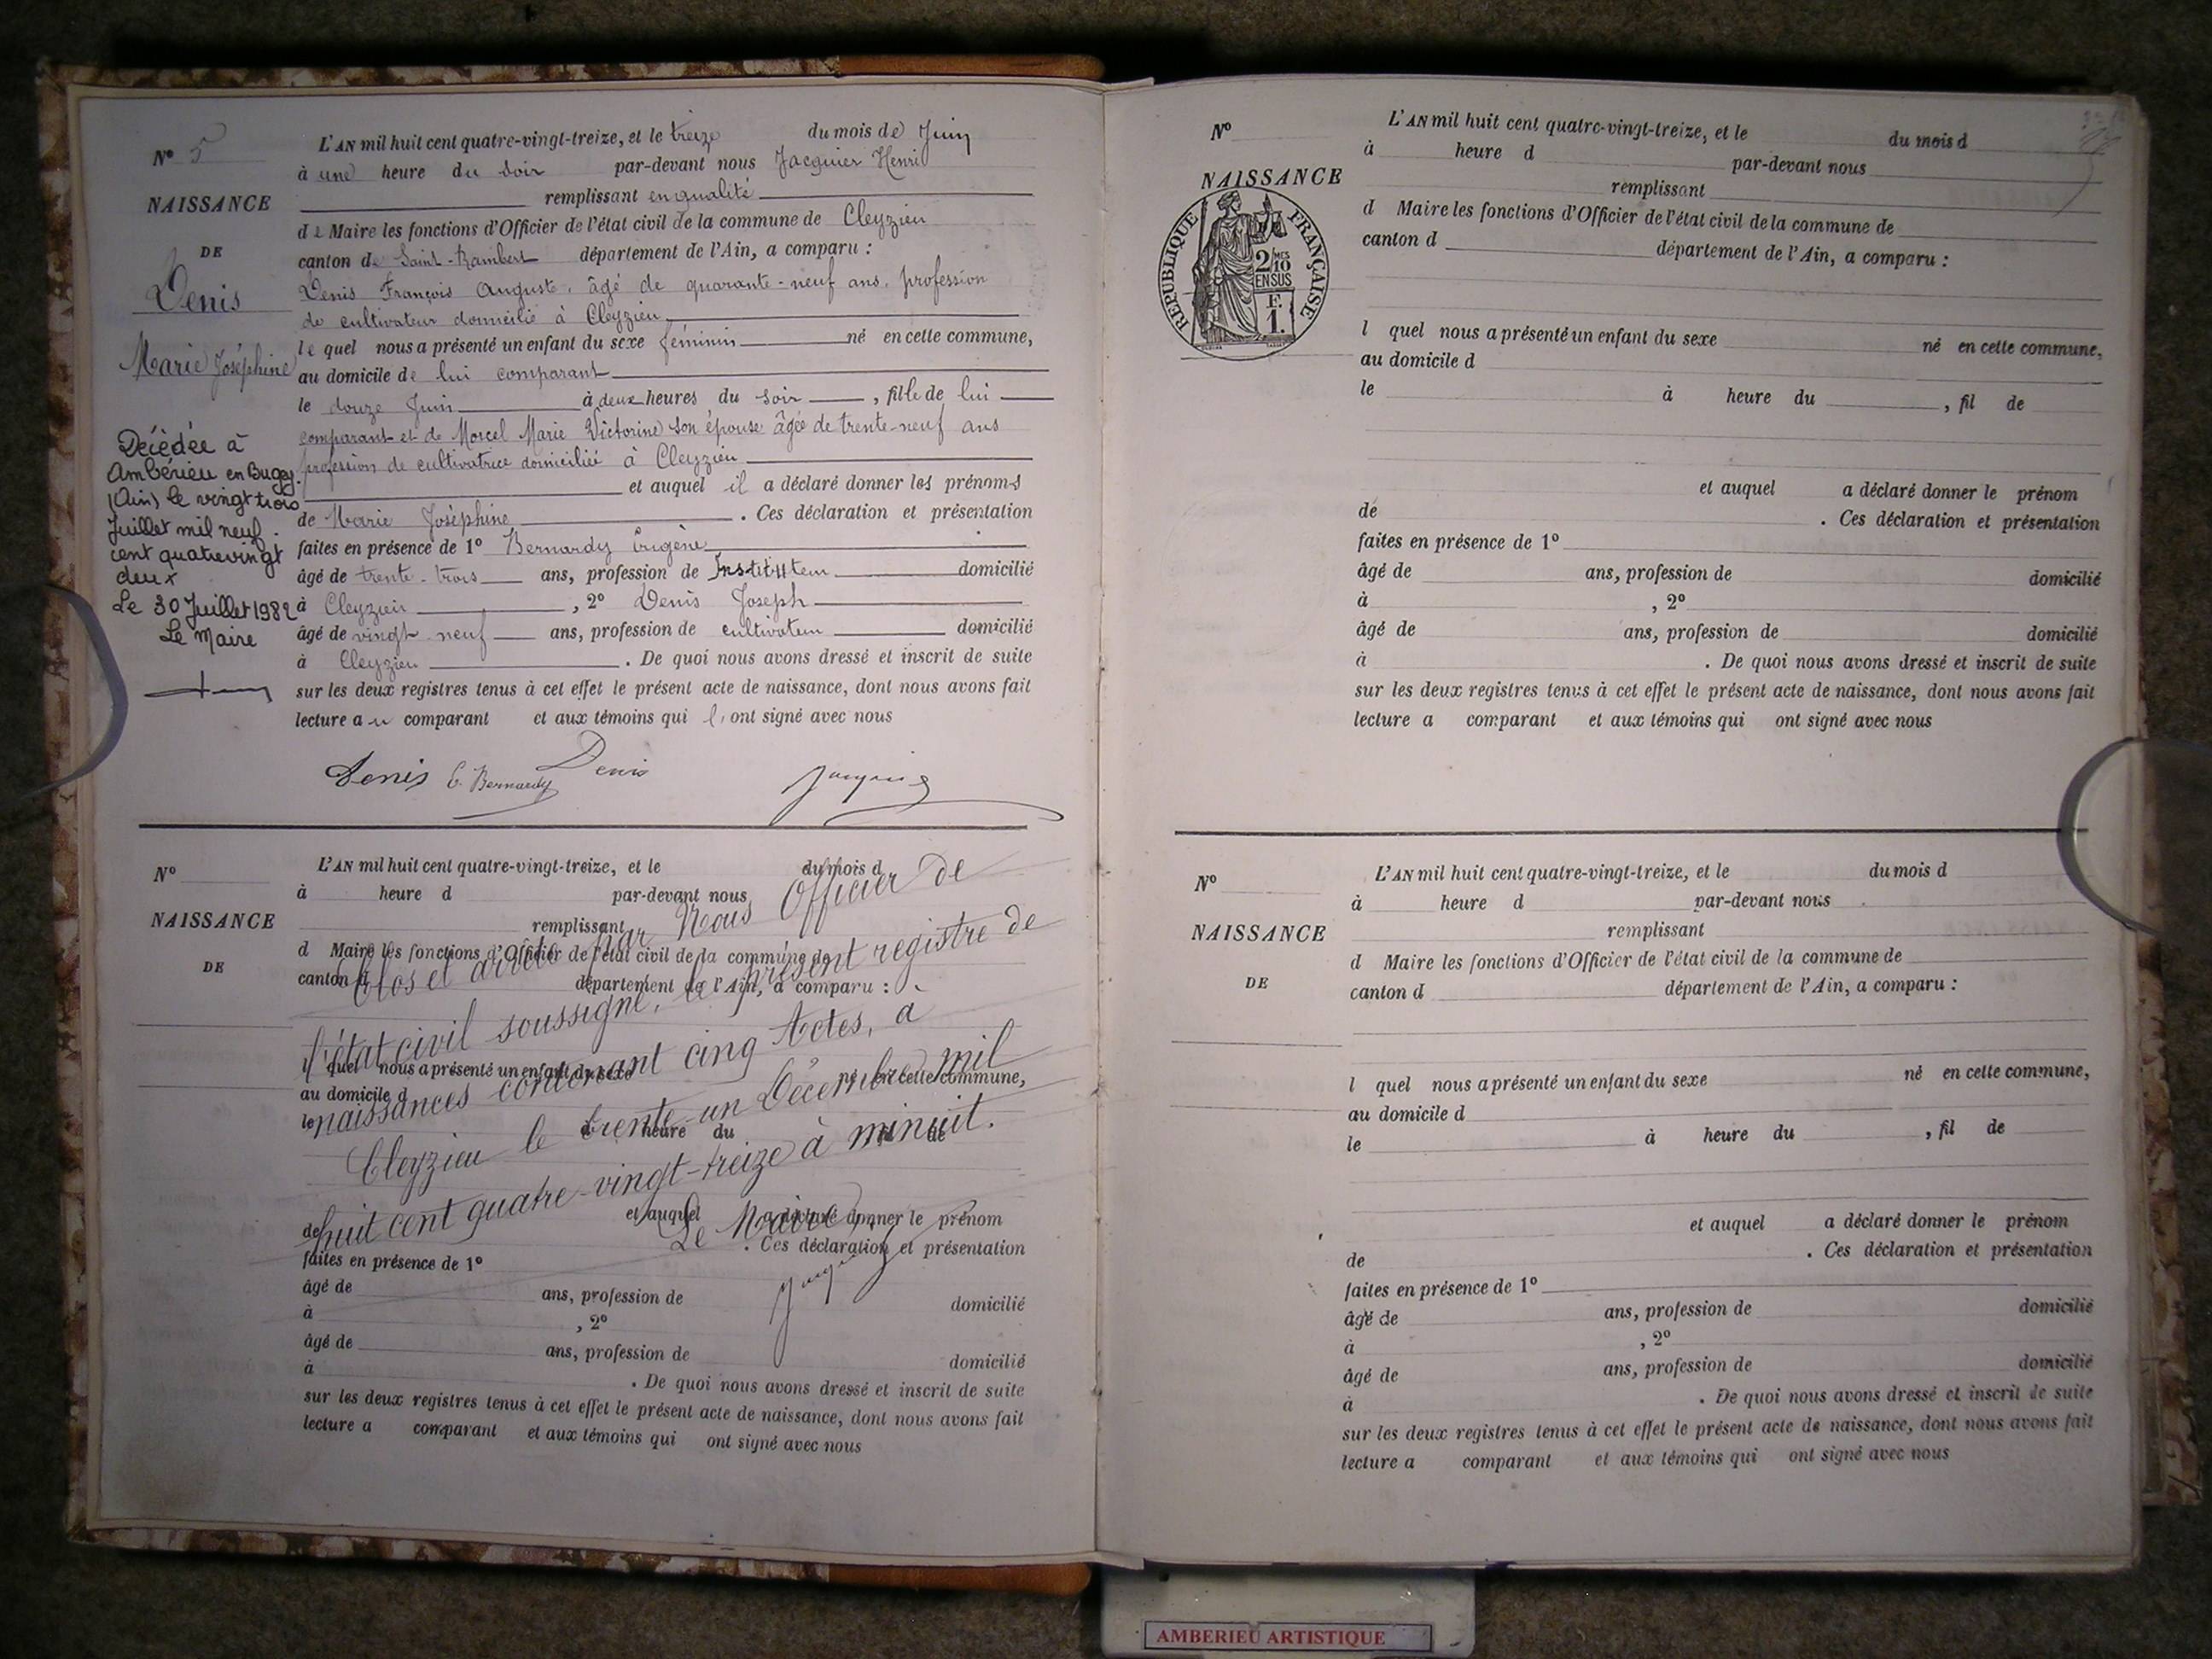 N° 5
NAISSANCE
DE
Denis
Marie Joséphine
Décédée à
Ambérieu en Bugey.
(Ain) le vingt trois
Juillet mil neuf
cent quatre vingt
deux
Le 30 Juillet 1982
Le Maire
L'AN mil huit cent quatre-vingt-treize, et le treize du mois de Juin
à une heure du soir par-devant nous Jacquier Henri
remplissant en qualité
de Maire les fonctions d'Officier de l'état civil de la commune de Cleyzieu
canton de Saint-Rambert département de l'Ain, a comparu :
Denis François Auguste, âgé de quarante-neuf ans, profession
de cultivateur domicilié à Cleyzieu
lequel nous a présenté un enfant du sexe féminin né en cette commune,
au domicile de lui comparant
le douze Juin à deux heures du soir, fille de lui
comparant et de Morcel Marie Victorine son épouse âgée de trente-neuf ans
profession de cultivatrice domiciliée à Cleyzieu
et auquel il a déclaré donner les prénoms
de Marie Joséphine. Ces déclaration et présentation
faites en présence de 1° Bernardy Eugène
âgé de trente-trois ans, profession de Instituteur domicilié
à Cleyzieu, 2° Denis Joseph
âgé de vingt-neuf ans, profession de cultivateur domicilié
à Cleyzieu. De quoi nous avons dressé et inscrit de suite
sur les deux registres tenus à cet effet le présent acte de naissance, dont nous avons fait
lecture au comparant et aux témoins qui ont signé avec nous
Denis E. Bernardy Denis Jacquier
N°
NAISSANCE
DE
L'AN mil huit cent quatre-vingt-treize, et le du mois d
à heure d par-devant nous
remplissant
d Maire les fonctions d'Officier de l'état civil de la commune de
canton d département de l'Ain, a comparu :
l quel nous a présenté un enfant du sexe né en cette commune,
au domicile d
le à heure du , fil de
et auquel a déclaré donner le prénom
de . Ces déclaration et présentation
faites en présence de 1°
âgé de ans, profession de domicilié
à , 2°
âgé de ans, profession de domicilié
à . De quoi nous avons dressé et inscrit de suite
sur les deux registres tenus à cet effet le présent acte de naissance, dont nous avons fait
lecture a comparant et aux témoins qui ont signé avec nous
Clos et arrêté par Nous Officier de
l'état civil soussigné, le présent registre de
naissances contenant cinq Actes, a
Cleyzieu le trente-un Décembre mil
huit cent quatre-vingt-treize à minuit.
Le Maire,
Jacquier
N°
NAISSANCE
RÉPUBLIQUE FRANÇAISE
2/10 MES
EN SUS
F.
1.
L'AN mil huit cent quatre-vingt-treize, et le du mois d
à heure d par-devant nous
remplissant
d Maire les fonctions d'Officier de l'état civil de la commune de
canton d département de l'Ain, a comparu :
l quel nous a présenté un enfant du sexe né en cette commune,
au domicile d
le à heure du , fil de
et auquel a déclaré donner le prénom
de . Ces déclaration et présentation
faites en présence de 1°
âgé de ans, profession de domicilié
à , 2°
âgé de ans, profession de domicilié
à . De quoi nous avons dressé et inscrit de suite
sur les deux registres tenus à cet effet le présent acte de naissance, dont nous avons fait
lecture a comparant et aux témoins qui ont signé avec nous
N°
NAISSANCE
DE
L'AN mil huit cent quatre-vingt-treize, et le du mois d
à heure d par-devant nous
remplissant
d Maire les fonctions d'Officier de l'état civil de la commune de
canton d département de l'Ain, a comparu :
l quel nous a présenté un enfant du sexe né en cette commune,
au domicile d
le à heure du , fil de
et auquel a déclaré donner le prénom
de . Ces déclaration et présentation
faites en présence de 1°
âgé de ans, profession de domicilié
à , 2°
âgé de ans, profession de domicilié
à . De quoi nous avons dressé et inscrit de suite
sur les deux registres tenus à cet effet le présent acte de naissance, dont nous avons fait
lecture a comparant et aux témoins qui ont signé avec nous
AMBERIEU ARTISTIQUE